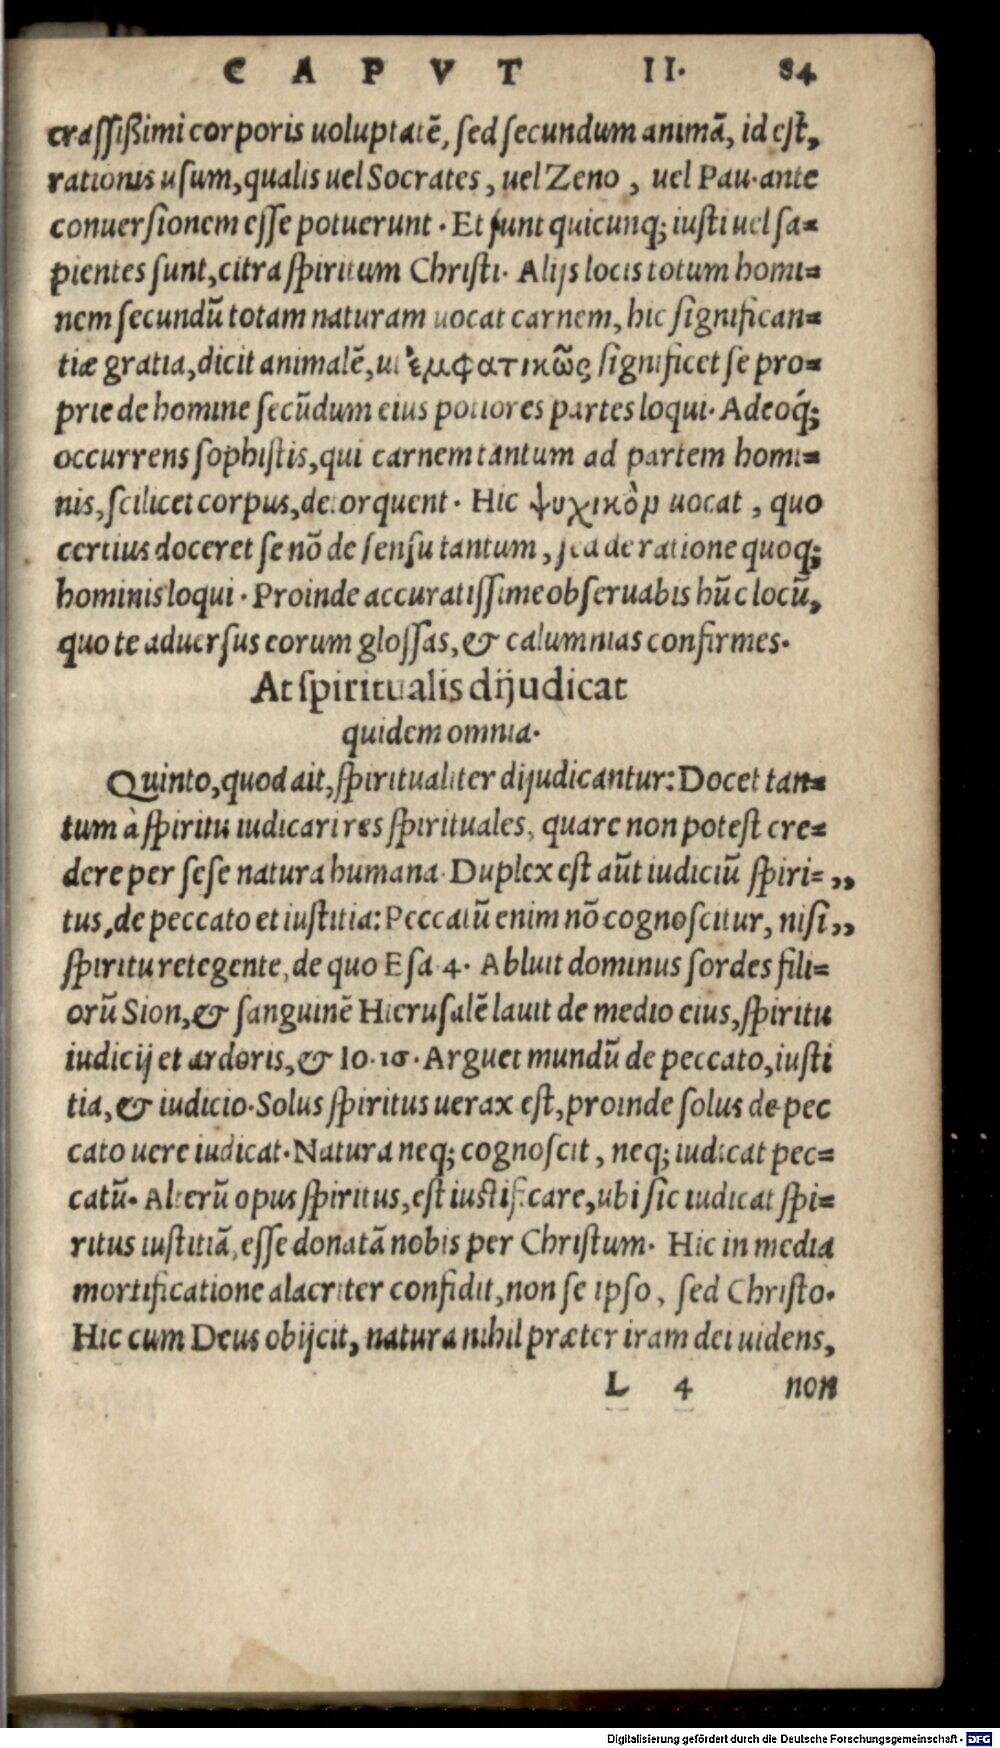 CAPVT II. 84
crassißimi corporis uoluptatē, sed secundum animā, id est,
rationis usum, qualis uel Socrates, uel Zeno, uel Pau. ante
conuersionem esse potuerunt. Et sunt quicunq; iusti uel sa=
pientes sunt, citra spiritum Christi. Alijs locis totum homi=
nem secundū totam naturam uocat carnem, hic significan=
tiæ gratia, dicit animalē, ut ἐμφατικῶς significet se pro=
prie de homine secūdum eius potiores partes loqui. Adeoq́;
occurrens sophistis, qui carnem tantum ad partem homi=
nis, scilicet corpus, detorquent. Hic ψυχικὸν uocat, quo
certius doceret se nō de sensu tantum, sed de ratione quoq;
hominis loqui. Proinde accuratissime obseruabis hūc locū,
quo te aduersus eorum glossas, & calumnias confirmes.
At spiritualis dijudicat
quidem omnia.
Quinto, quod ait, spiritualiter dijudicantur: Docet tan=
tum à spiritu iudicari res spirituales, quare non potest cre=
dere per sese natura humana. Duplex est aūt iudiciū spiri=,,
tus, de peccato et iustitia: Peccatū enim nō cognoscitur, nisi,,
spiritu retegente, de quo Esa. 4. Abluit dominus sordes fili=
orū Sion, & sanguinē Hierusalē lauit de medio eius, spiritu
iudicij et ardoris, & Io. 16. Arguet mundū de peccato, iusti
tia, & iudicio. Solus spiritus uerax est, proinde solus de pec
cato uere iudicat. Natura neq; cognoscit, neq; iudicat pec=
catū. Alterū opus spiritus, est iustificare, ubi sic iudicat spi=
ritus iustitiā, esse donatā nobis per Christum. Hic in media
mortificatione alacriter confidit, non se ipso, sed Christo.
Hic cum Deus obijcit, natura nihil præter iram dei uidens,
L 4 non
Digitalisierung gefördert durch die Deutsche Forschungsgemeinschaft - DFG